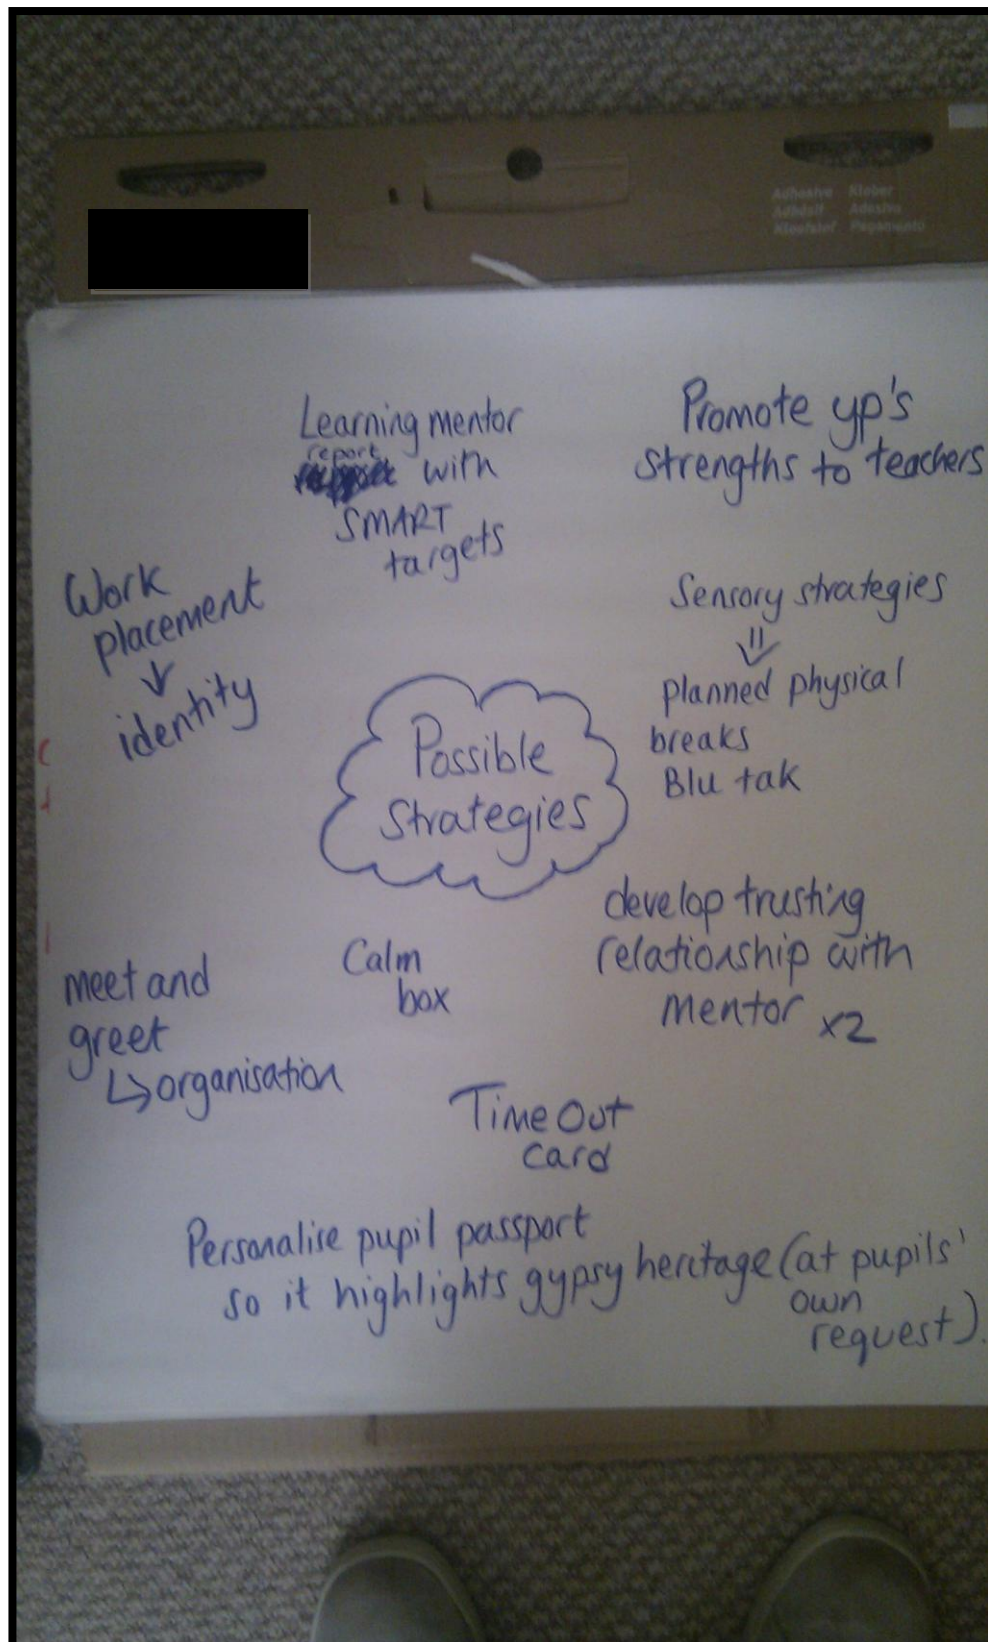 Adhesive Kleber
Adhäsif Adesivo
Kleefstof Pegamento
Learning mentor
report
with
SMART
targets
Promote yp's
strengths to teachers
Work
placement
identity
Sensory strategies
planned physical
breaks
Blu tak
Possible
Strategies
develop trusting
relationship with
mentor x2
Calm
box
meet and
greet
organisation
Time Out
card
Personalise pupil passport
so it highlights gypsy heritage (at pupils'
own
request).